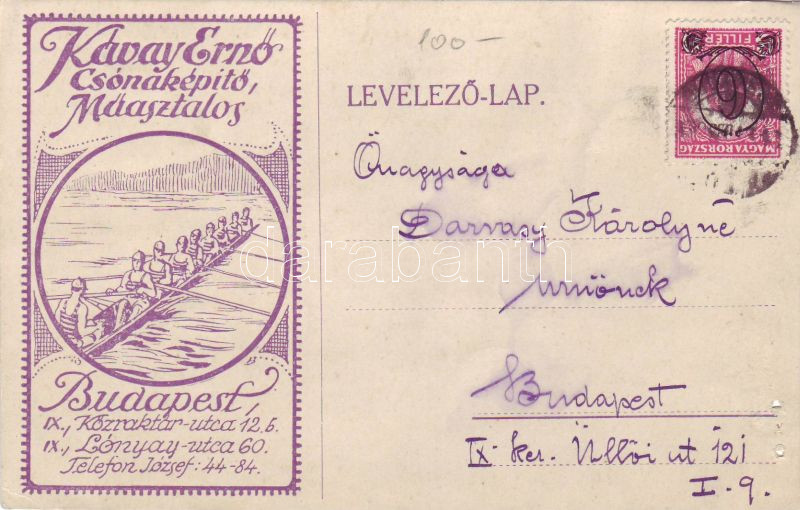 Kávay Ernő
Csónaképitő,
Műasztalos
Budapest,
IX., Közraktár-utca 12.b.
IX., Lónyay-utca 60.
Telefon József: 44-84.
100-
LEVELEZŐ-LAP.
MAGYARORSZÁG
FILLÉR
Önagysága
Darvasy Károlyné
urnőnek
Budapest
IX ker. Üllői út 121
I-9.
darabanth